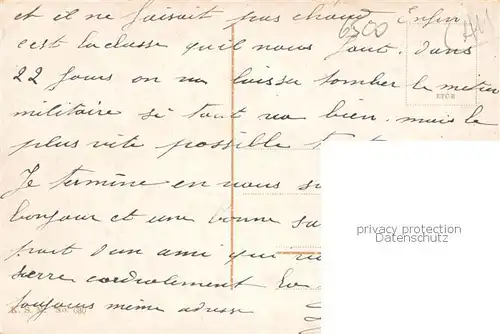 et il ne faisait pas chaud Enfin
6500
c'est la classe qu'il nous faut. dans
22 jours on va laisser tomber le metier
militaire si tout va bien. mais le
plus vite possible
Je termine en vous
bonjour et une bonne
part d'un ami que
serre cordialement
toujours même adresse
privacy protection
Datenschutz
No. 080